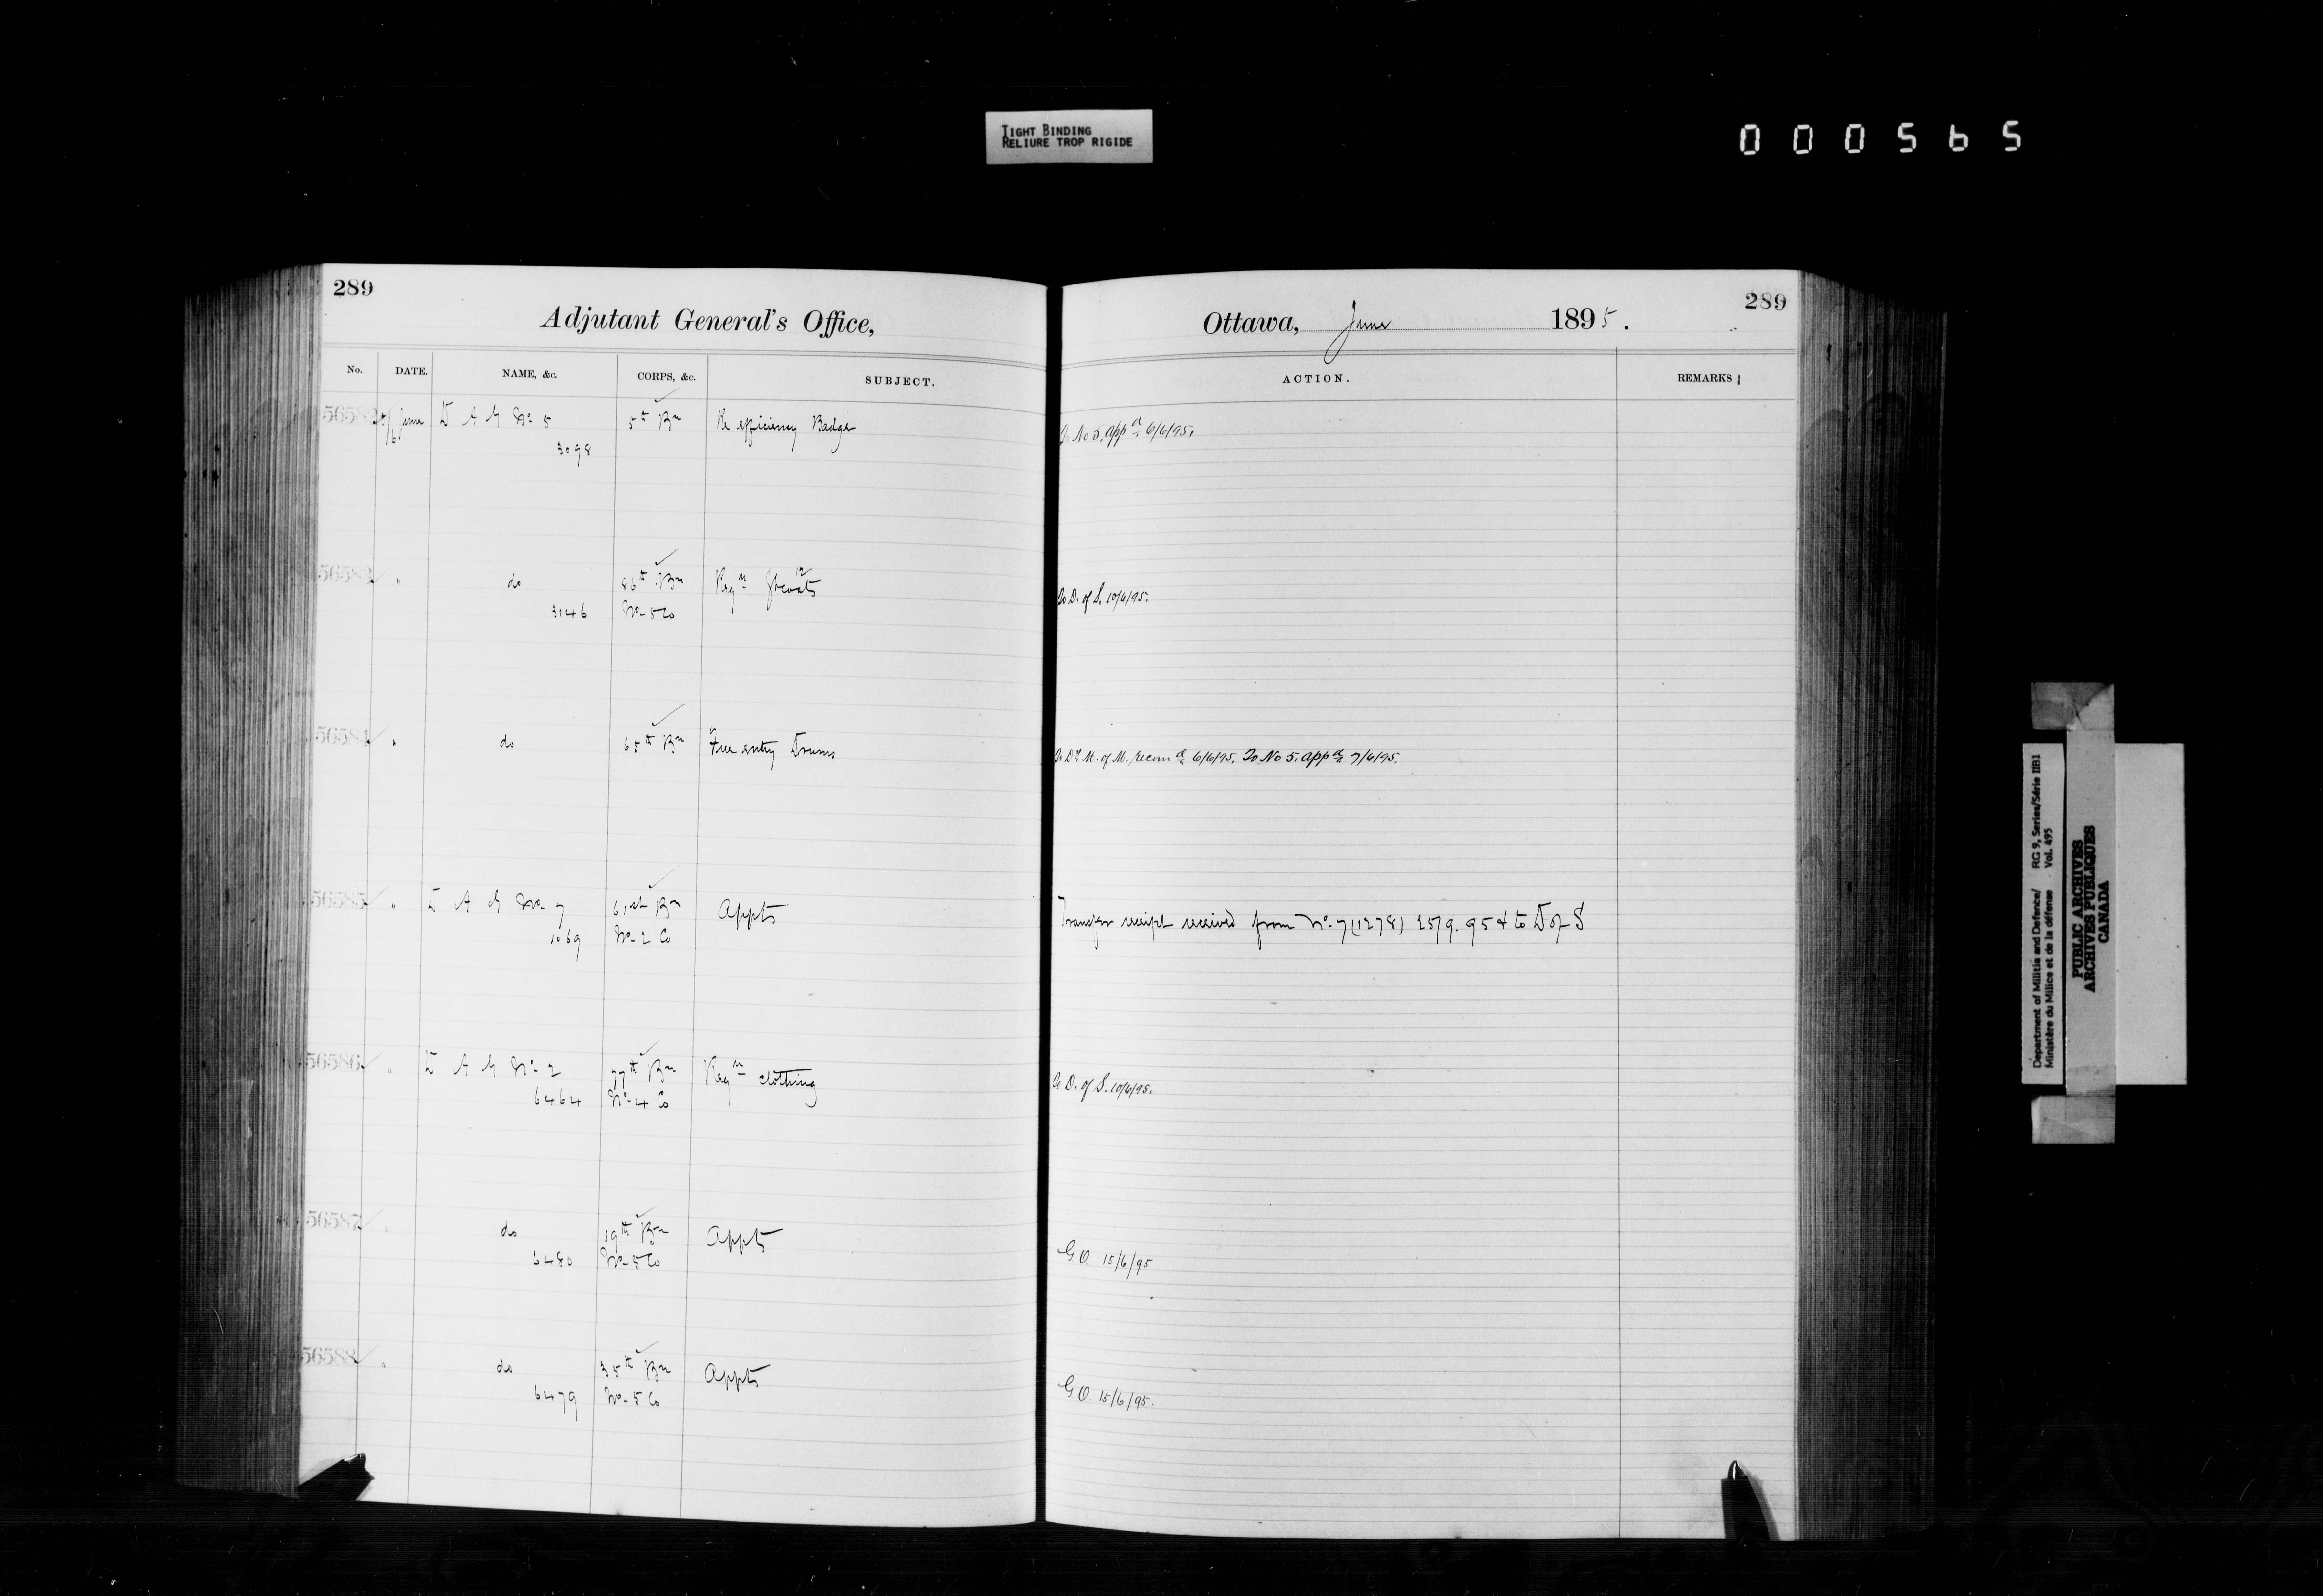 TIGHT BINDING
RELIURE TROP RIGIDE
000565
289
Adjutant General's Office,
Ottawa, June 1895.
289
No. DATE. NAME, &c. CORPS, &c. SUBJECT. ACTION. REMARKS
June D A G No 5 5th Bn Re efficiency Badges To No 5. appd 6/6/95.
3098
56583 " do 86th Bn Reqn Gtcoats To D. of S. 10/6/95.
3146 No-5 Co
56584 " do 65th Bn Free entry Drums To D. M. of M. recomd 6/6/95. To No 5. appd 7/6/95.
56585 " D A G No 7 61st Bn Appts Transfer receipt received from No 7 (1278) 25/9.95 & to D of S
1069 No-2 Co
56586 " D A G No 2 77th Bn Reqn clothing To D. of S. 10/6/95.
6464 No-4 Co
56587 " do 19th Bn Appts G.O. 15/6/95
6480 No-5 Co
56588 " do 35th Bn Appts G.O. 15/6/95.
6479 No-5 Co
Department of Militia and Defence/ RG 9, Series/Série IIB1
Ministère du Milice et de la défense Vol. 495
PUBLIC ARCHIVES
ARCHIVES PUBLIQUES
CANADA